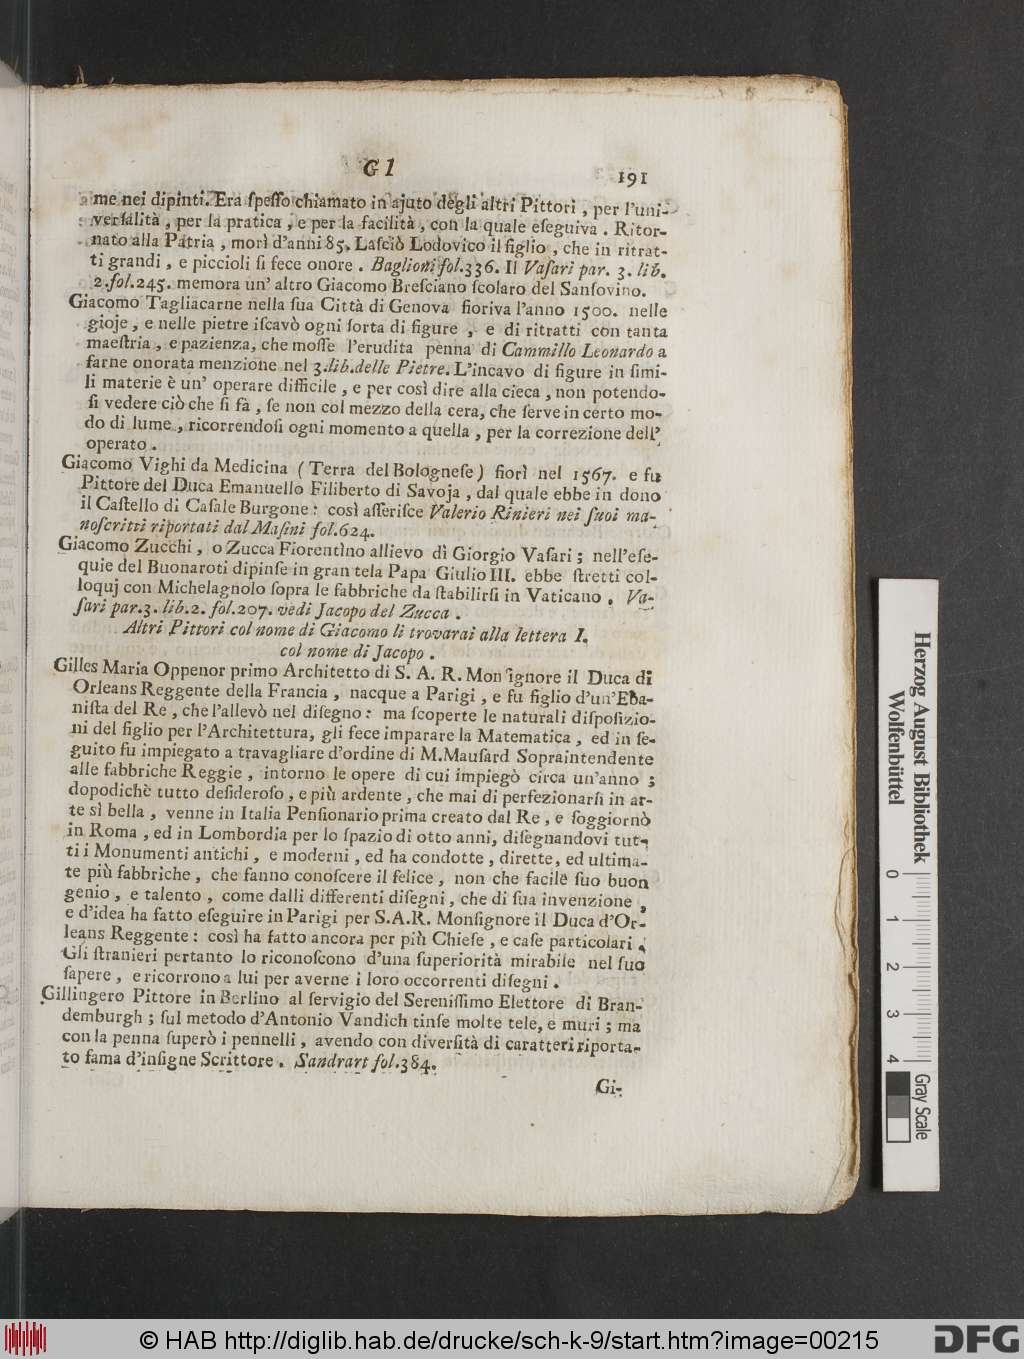 G I
191
me nei dipinti. Era ſpeſſo chiamato in ajuto degli altri Pittori , per l'uni-
verſalità , per la pratica , e per la facilità , con la quale eſeguiva . Ritor-
nato alla Patria , morì d'anni 85. Laſciò Lodovico il figlio , che in ritrat-
ti grandi , e piccioli ſi fece onore . Baglioni fol.336. Il Vaſari par. 3. lib.
2. fol.245. memora un' altro Giacomo Breſciano ſcolaro del Sanſovino.
Giacomo Tagliacarne nella ſua Città di Genova fioriva l'anno 1500. nelle
gioje , e nelle pietre iſcavò ogni ſorta di figure , e di ritratti con tanta
maeſtria , e pazienza, che moſſe l'erudita penna di Cammillo Leonardo a
farne onorata menzione nel 3.lib.delle Pietre. L'incavo di figure in ſimi-
li materie è un' operare difficile , e per così dire alla cieca , non potendo-
ſi vedere ciò che ſi fà , ſe non col mezzo della cera, che ſerve in certo mo-
do di lume , ricorrendoſi ogni momento a quella , per la correzione dell'
operato .
Giacomo Vighi da Medicina ( Terra del Bologneſe ) fiorì nel 1567. e fu
Pittore del Duca Emanuello Filiberto di Savoja , dal quale ebbe in dono
il Caſtello di Caſale Burgone : così aſſeriſce Valerio Rinieri nei ſuoi ma-
noſcritti riportati dal Maſini fol.624.
Giacomo Zucchi , o Zucca Fiorentino allievo di Giorgio Vaſari ; nell'eſe-
quie del Buonaroti dipinſe in gran tela Papa Giulio III. ebbe ſtretti col-
loquj con Michelagnolo ſopra le fabbriche da ſtabilirſi in Vaticano . Va-
ſari par.3. lib.2. fol.207. vedi Jacopo del Zucca .
Altri Pittori col nome di Giacomo li trovarai alla lettera I.
col nome di Jacopo .
Gilles Maria Oppenor primo Architetto di S. A. R. Monſignore il Duca di
Orleans Reggente della Francia , nacque a Parigi , e fu figlio d'un'Eba-
niſta del Re , che l'allevò nel diſegno : ma ſcoperte le naturali diſpoſizio-
ni del figlio per l'Architettura, gli fece imparare la Matematica , ed in ſe-
guito fu impiegato a travagliare d'ordine di M.Mauſard Sopraintendente
alle fabbriche Reggie , intorno le opere di cui impiegò circa un'anno ;
dopodichè tutto deſideroſo , e più ardente , che mai di perfezionarſi in ar-
te sì bella , venne in Italia Penſionario prima creato dal Re , e ſoggiornò
in Roma , ed in Lombordia per lo ſpazio di otto anni, diſegnandovi tut-
ti i Monumenti antichi , e moderni , ed ha condotte , dirette, ed ultima-
te più fabbriche , che fanno conoſcere il felice , non che facile ſuo buon
genio , e talento , come dalli differenti diſegni , che di ſua invenzione ,
e d'idea ha fatto eſeguire in Parigi per S.A.R. Monſignore il Duca d'Or-
leans Reggente : così ha fatto ancora per più Chieſe , e caſe particolari .
Gli ſtranieri pertanto lo riconoſcono d'una ſuperiorità mirabile nel ſuo
ſapere , e ricorrono a lui per averne i loro occorrenti diſegni .
Gillingero Pittore in Berlino al ſervigio del Sereniſſimo Elettore di Bran-
demburgh ; ſul metodo d'Antonio Vandich tinſe molte tele, e muri ; ma
con la penna ſuperò i pennelli , avendo con diverſità di caratteri riporta-
to fama d'inſigne Scrittore . Sandrart fol.384.
Gi-
Herzog August Bibliothek
Wolfenbüttel
0 1 2 3 4
Gray Scale
© HAB http://diglib.hab.de/drucke/sch-k-9/start.htm?image=00215
DFG